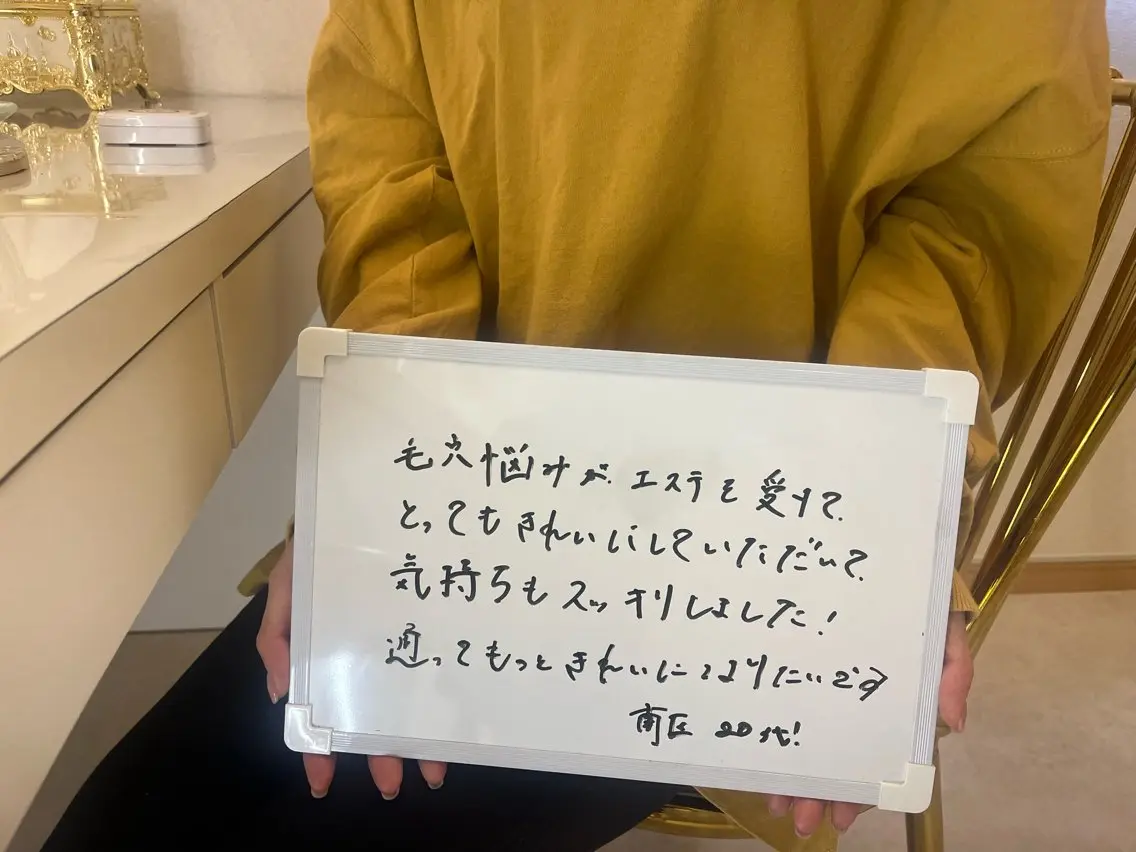 毛穴悩みが、エステを受けて、
とってもきれいにしていただいて、
気持ちもスッキリしました!
通ってもっときれいになりたいです
南区 20代!